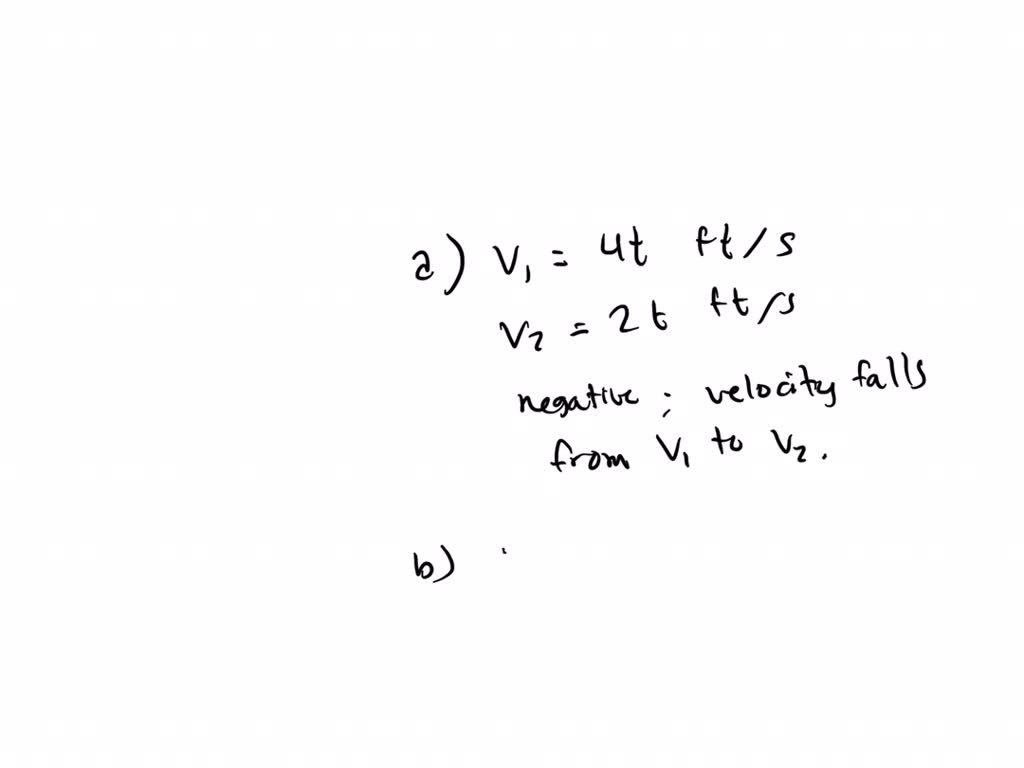 a) V₁ = 4t ft/s
V₂ = 2t ft/s
negative ; velocity falls
from V₁ to V₂.
b)